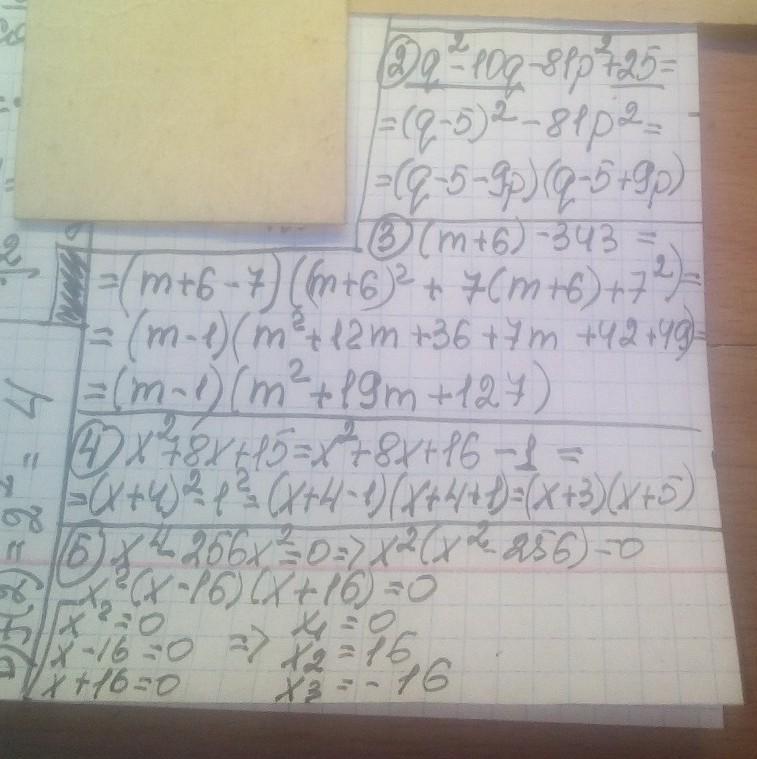 ② q² - 10q - 81p² + 25 =
= (q - 5)² - 81p² =
= (q - 5 - 9p)(q - 5 + 9p)
③ (m + 6) - 343 =
= (m + 6 - 7)((m + 6)² + 7(m + 6) + 7²) =
= (m - 1)(m² + 12m + 36 + 7m + 42 + 49) =
= (m - 1)(m² + 19m + 127)
④ x² + 8x + 15 = x² + 8x + 16 - 1 =
= (x + 4)² - 1² = (x + 4 - 1)(x + 4 + 1) = (x + 3)(x + 5)
⑤ x⁴ - 256x² = 0 => x²(x² - 256) = 0
x²(x - 16)(x + 16) = 0
x² = 0 x₁ = 0
x - 16 = 0 => x₂ = 16
x + 16 = 0 x₃ = -16